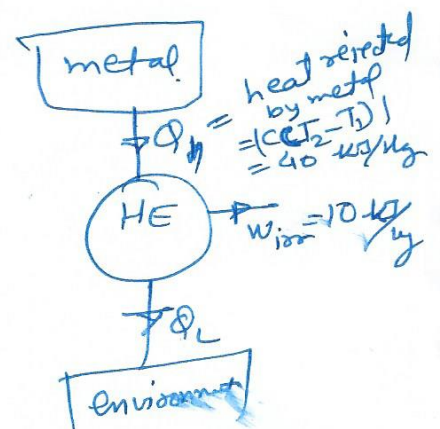 metal
heat rejected
by metal
Q_H =
= |C(T₂-T₁)|
= 40 kJ/kg
HE
W_irr = 10 kJ/kg
Q_L
environment